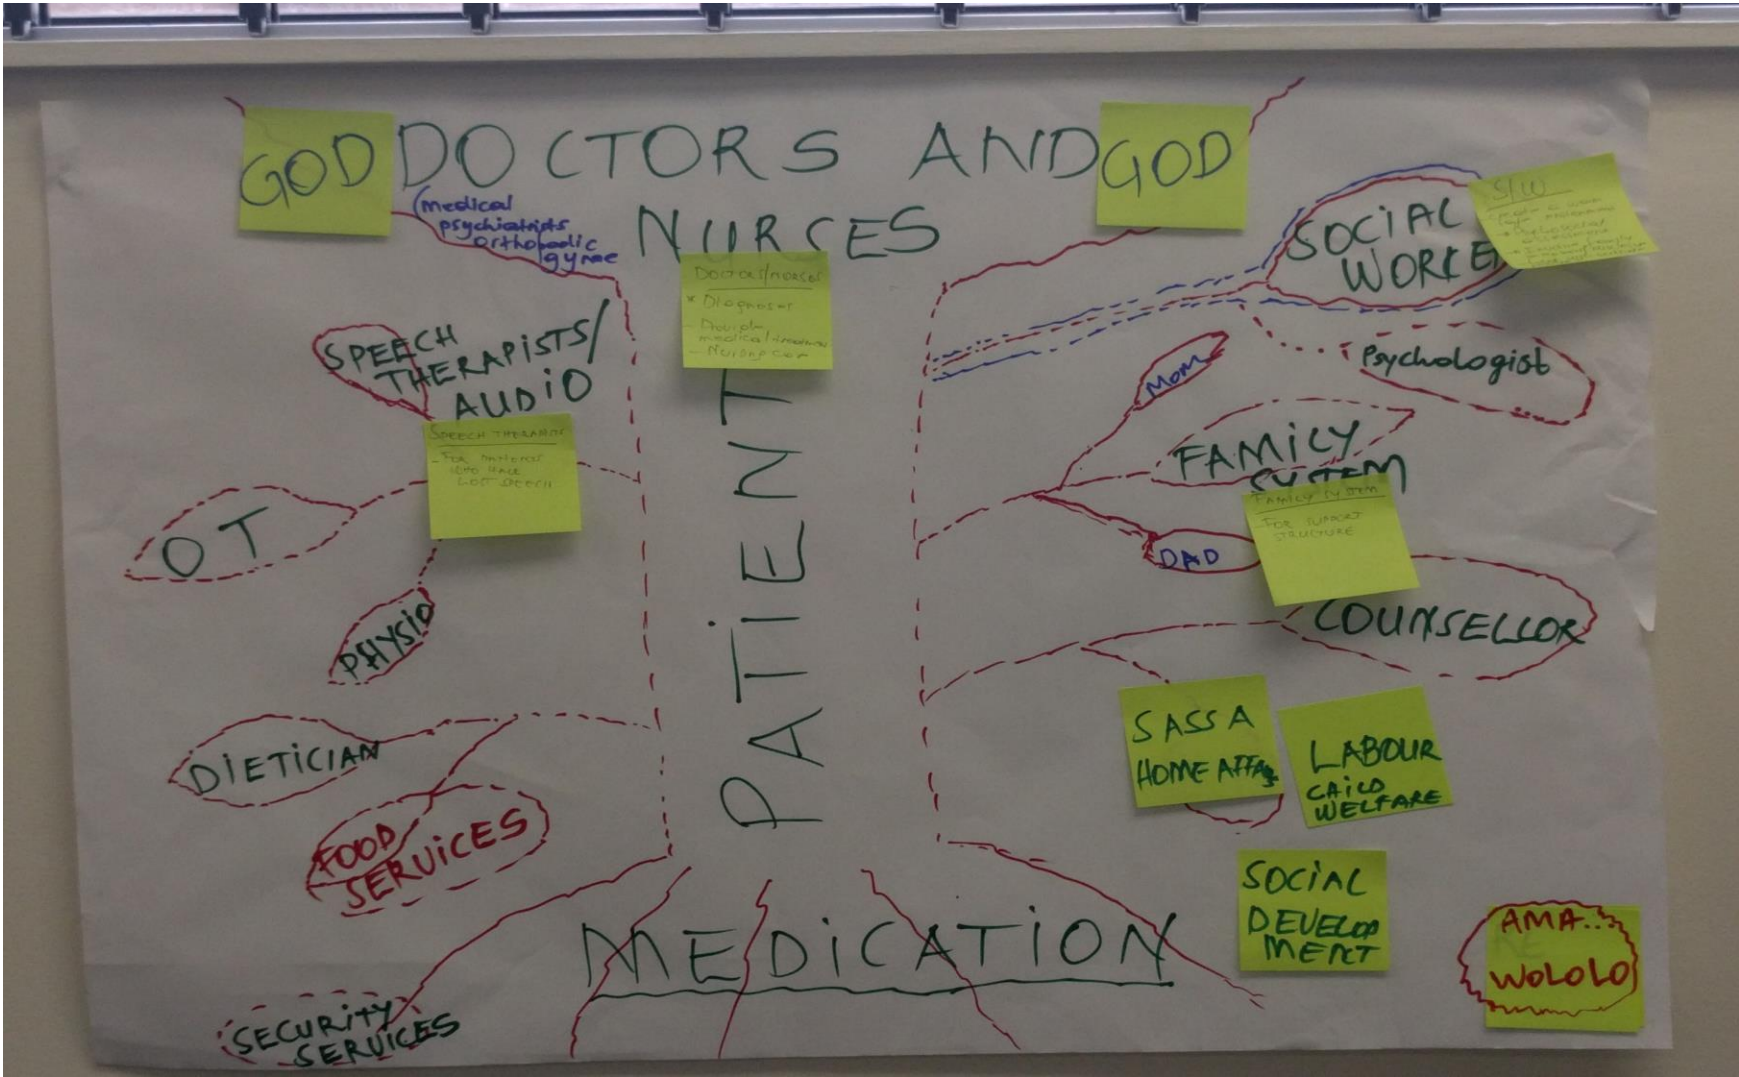 GOD
DOCTORS AND
GOD
NURSES
(medical
psychiatrists
orthopadic
gynae
DOCTORS/NURSES
* Diagnoses
- Provide
medical treatment
- Nursing care
SPEECH
THERAPISTS/
AUDIO
SPEECH THERAPIST
- FOR PATIENTS
WHO HAVE
LOST SPEECH
OT
PHYSIO
DIETICIAN
FOOD
SERVICES
SECURITY
SERVICES
PATIENT
MEDICATION
SOCIAL
WORKE
S/W
Psychologist
MOM
FAMILY
SYSTEM
FAMILY SYSTEM
- FOR SUPPORT
STRUCTURE
DAD
COUNSELLOR
SASSA
HOME AFFA
LABOUR
CHILD
WELFARE
SOCIAL
DEVELOP
MENT
AMA...
WOLOLO